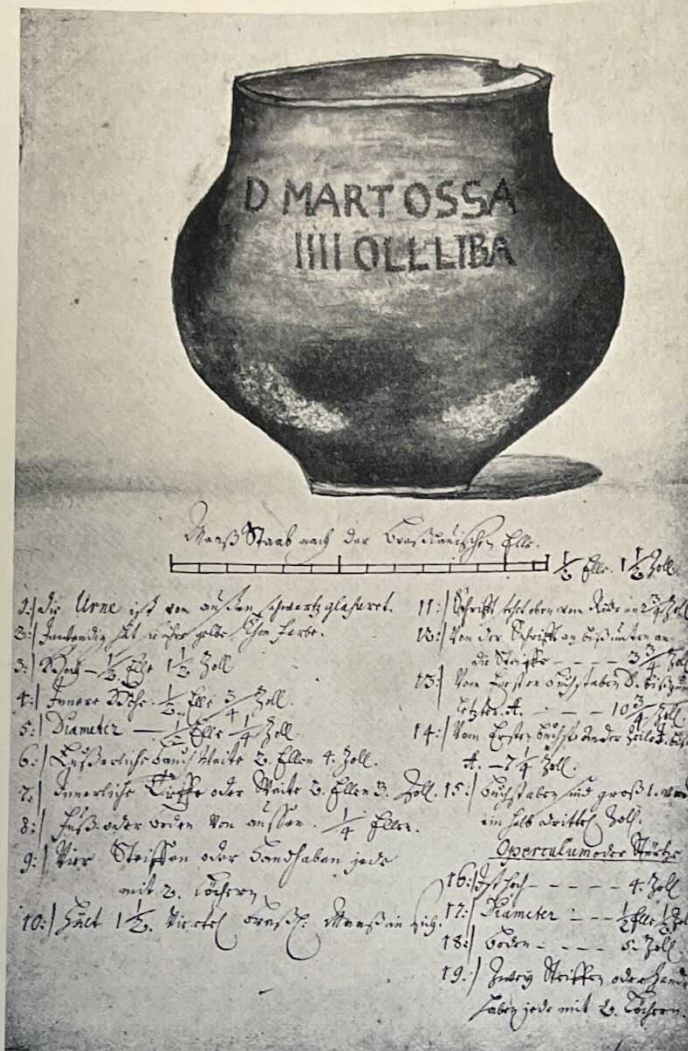 D MART OSSA
IIII OLL LIBA
Maaß Staab nach der Breßlauischen Elle.
1/2 Elle. 1 1/2 Zoll
1:/ die Urne ist von außen schwartz glasuret.
2:/ Inwendig hat sie ihre gelbe Farbe.
3:/ Hoch — 1/2 Elle 1 1/2 Zoll
4:/ Innere Höhe 1/2 Elle 3/4 Zoll.
5:/ Diameter — 1/2 Elle 1/4 Zoll.
6:/ Eußerliche Bauch Weite 2. Ellen 4. Zoll.
7:/ Innerliche Tieffe oder Weite 2. Ellen 3. Zoll.
8:/ Fuß oder Boden von außen. 1/4 Ellen.
9:/ Vier Streiffen oder Handhaben jede
mit 2. Löchern
10:/ Hält 1 1/2. Viertel Breßl: Maaß in sich.
11:/ Schrifft steht oben von 2 3/4 Zoll
12:/ Von der Schrifft an biß unten an
die Streiffe - - - - 3 3/4 Zoll
13:/ Vom Ersten Buchstaben D. biß zum
letzten A. - - - 10 3/4 Zoll.
14:/ Vom Ersten Buchst: ander Zeile I. biß
A. — 7 1/4 Zoll.
15:/ Buchstaben sind groß 1. und
ein halb drittel Zoll.
Operculum oder Stürtze
16:/ Ist hoch - - - - - 4. Zoll
17:/ Diameter - - - 1/2 Elle
18:/ Boden - - - - 5. Zoll
19:/ Zweÿ Streiffen oder Hand
haben jede mit 2. Löchern.